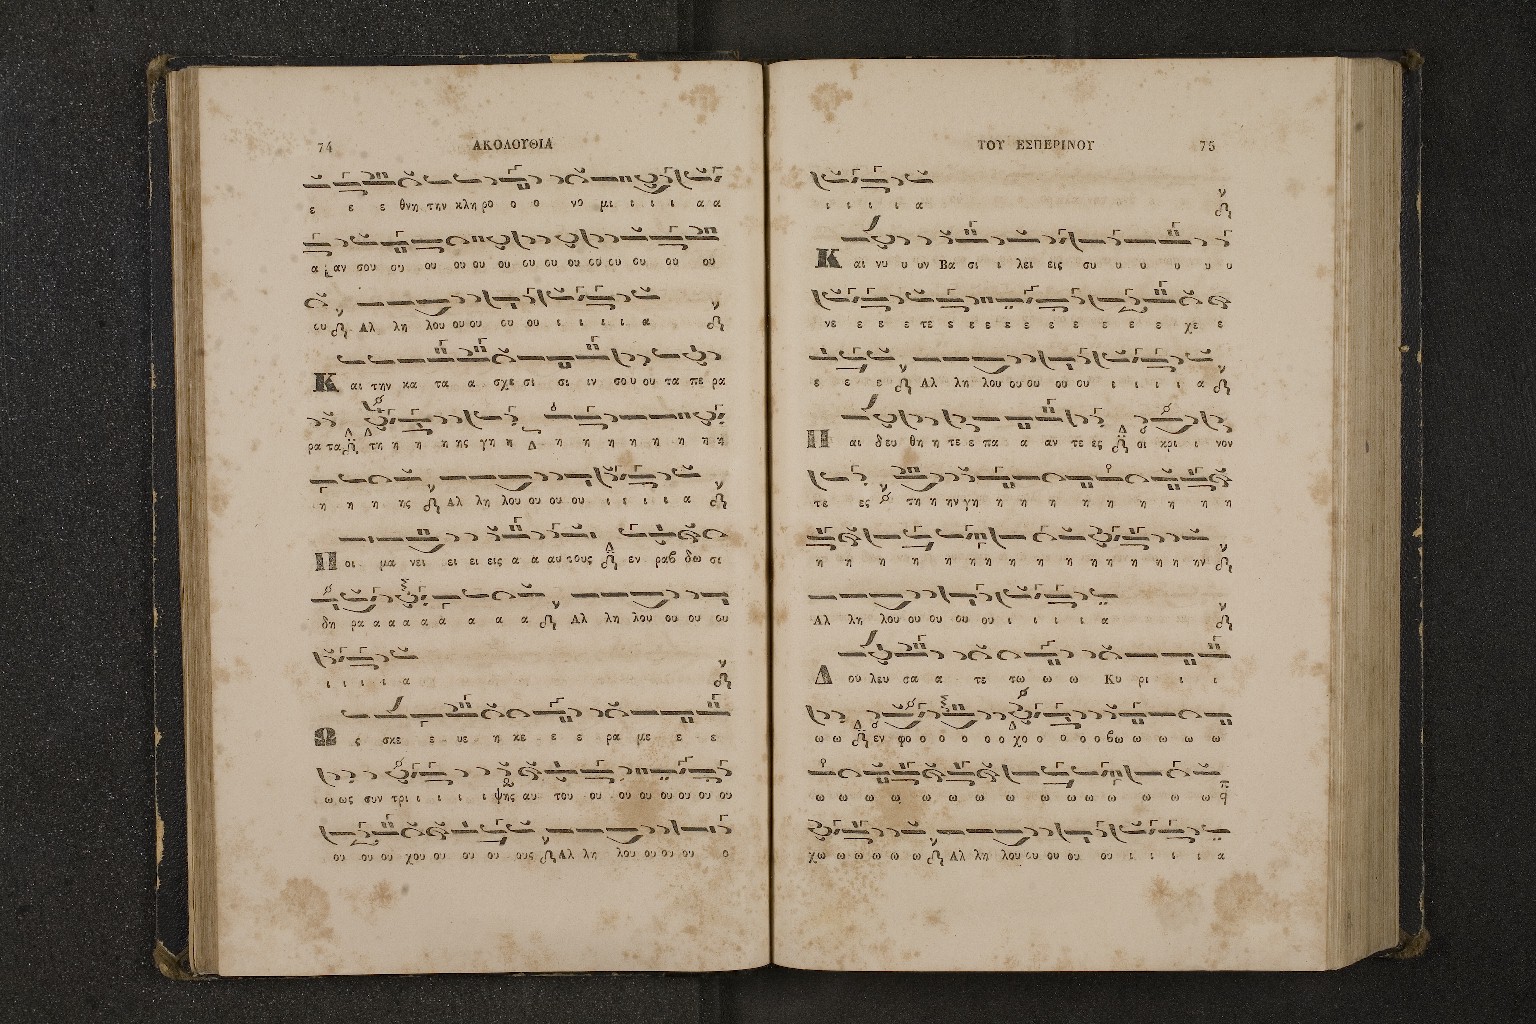 74 ΑΚΟΛΟΥΘΙΑ
ε ε ε θνη την κλη ρο ο ο νο μι ι ι ι α α
α αν σου ου ου ου ου ου ου ου ου ου ου ου ου ου
ου Αλ λη λου ου ου ου ου ι ι ι ι α
Και την κα τα α σχε σι σι ιν σου ου τα πε ρα
ρα τα τη η η η ης γη η η η η η η η η η
η η η ης Αλ λη λου ου ου ου ι ι ι ι α
Ποι μα νει ει ει εις α α αυ τους εν ραβ δω σι
δη ρα α α α α α α α α Αλ λη λου ου ου ου
ι ι ι ι α
Ως σκε ε υε η κε ε ε ρα με ε ε
ω ως συν τρι ι ι ι ι ψης αυ του ου ου ου ου ου ου ου
ου ου ου χου ου ου ου ους Αλ λη λου ου ου ου ο
ΤΟΥ ΕΣΠΕΡΙΝΟΥ 75
ι ι ι ι α
Και νυ υ υν Βα σι ι λει εις συ υ υ υ υ υ
νε ε ε ε τε ε ε ε ε ε ε ε ε ε ε χε ε
ε ε ε Αλ λη λου ου ου ου ου ι ι ι ι α
Παι δευ θη η τε ε πα α αν τε ες οι κρι ι νον
τε ες τη η ην γη η η η η η η η η η
η η η η η η η η η η η η η ην
Αλ λη λου ου ου ου ου ι ι ι ι α
Δου λευ σα α τε τω ω ω Κυ ρι ι ι
ω ω εν φο ο ο ο ο ο χο ο ο ο ο βω ω ω ω ω
ω ω ω ω ω ω ω ω ω ω ω ω ω ω ω
χω ω ω ω ω ω Αλ λη λου ου ου ου ου ι ι ι ι α